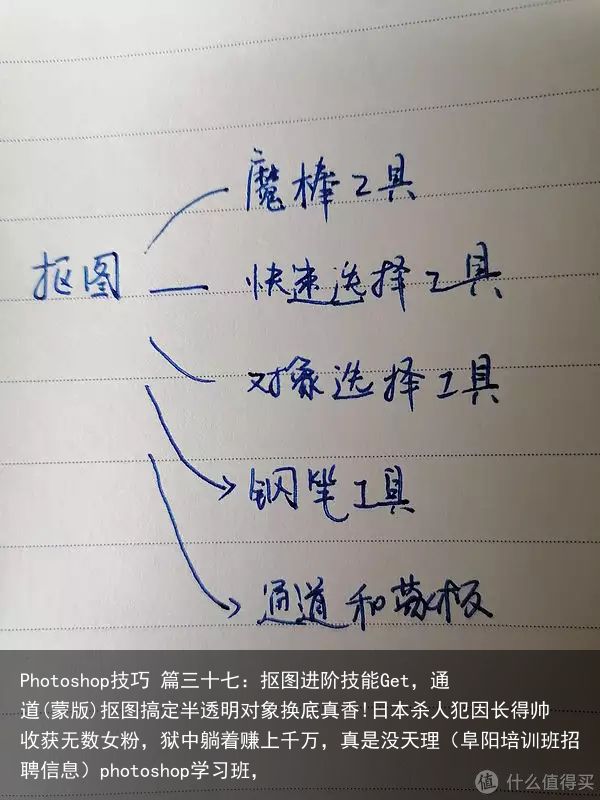 魔棒工具
抠图
快速选择工具
对象选择工具
钢笔工具
通道和蒙板
Photoshop技巧 篇三十七: 抠图进阶技能Get, 通
道(蒙版)抠图搞定半透明对象换底真香!日本杀人犯因长得帅
收获无数女粉, 狱中躺着赚上千万, 真是没天理 (阜阳培训班招
聘信息) photoshop学习班,
值 什么值得买